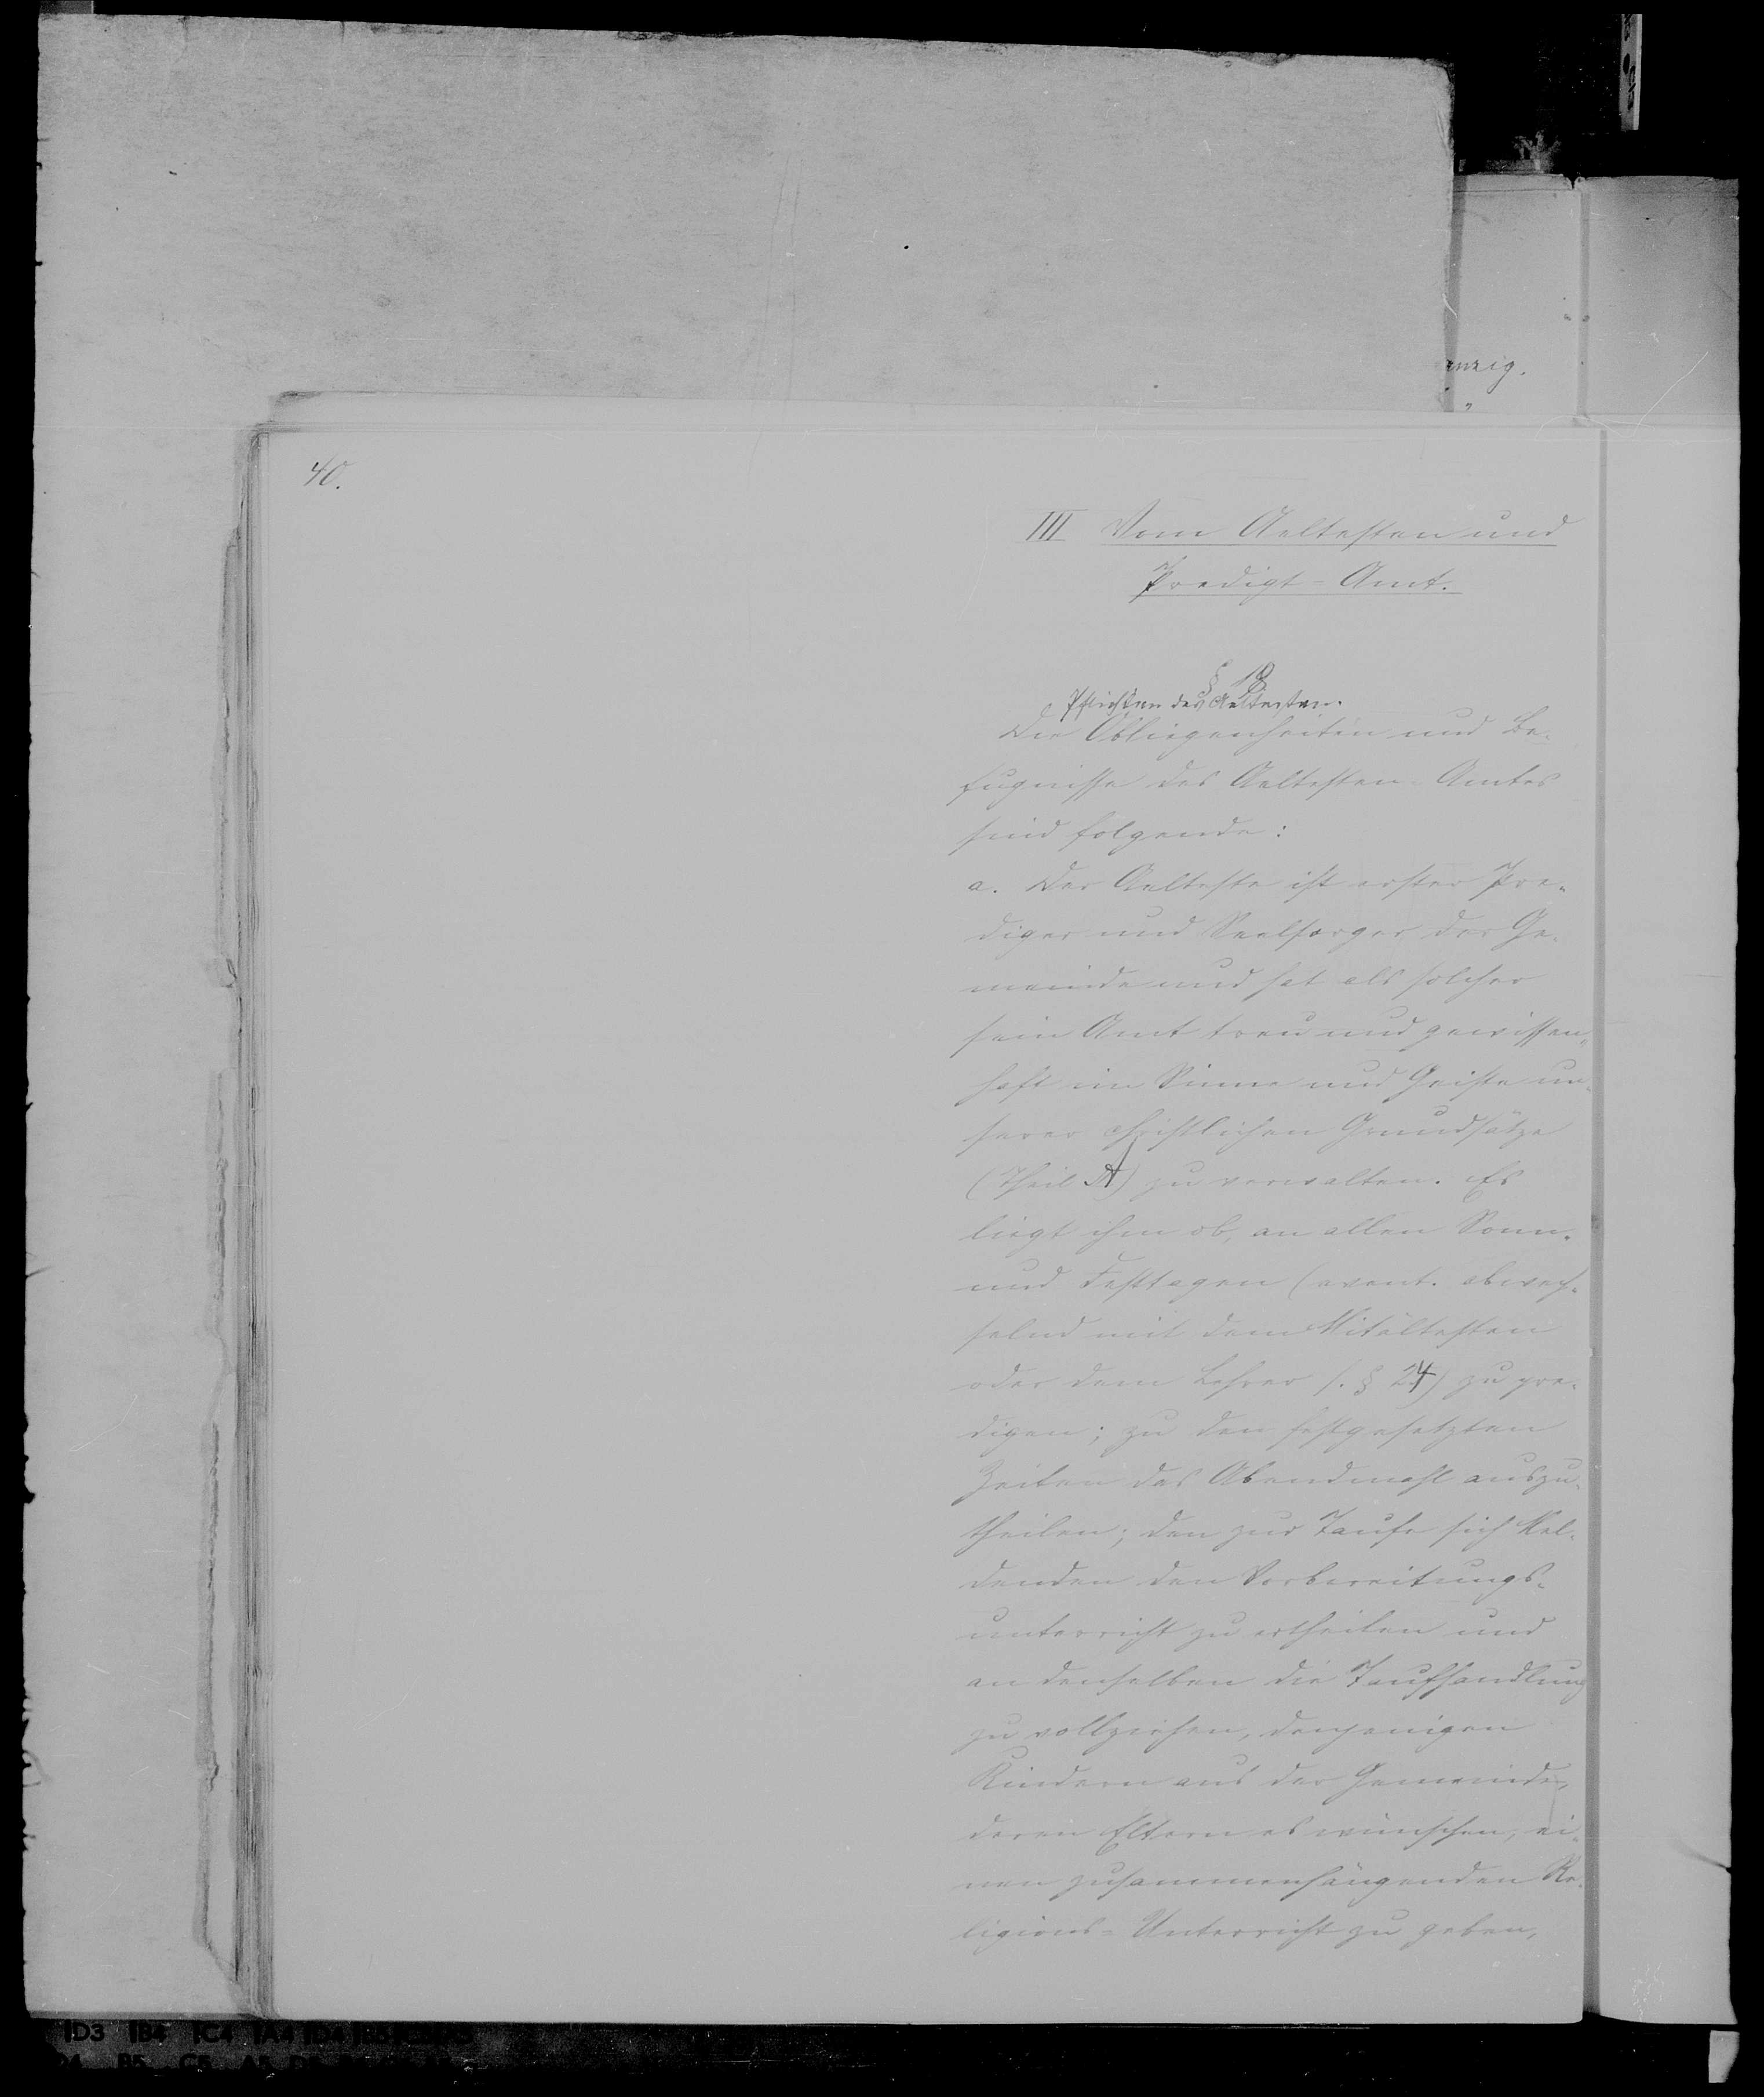 anzig.
40.
III Vom Aeltesten und
Predigt-Amt.
§ 18
Pflichten des Aeltesten.
Die Obliegenheiten und Be-
fugnisse des Aeltesten-Amtes
sind folgende:
a. Der Aelteste ist erster Pre-
diger und Seelsorger der Ge-
meinde und hat als solcher
sein Amt treu und gewissen-
haft im Sinne und Geiste un-
serer christlichen Grundsätze
(Theil A) zu verwalten. Es
liegt ihm ob, an allen Sonn-
und Festtagen (event. abwech-
selnd mit dem Mitältesten
oder dem Lehrer s. § 24) zu pre-
digen; zu den festgesetzten
Zeiten das Abendmahl auszu-
theilen; den zur Taufe sich Mel-
denden den Vorbereitungs-
unterricht zu ertheilen und
an denselben die Taufhandlung
zu vollziehen, denjenigen
Kindern aus der Gemeinde,
deren Eltern es wünschen, ei-
nen zusammenhängenden Re-
ligions-Unterricht zu geben,
D3 B4 C4 A4 D4
B5 C5 A5 D5